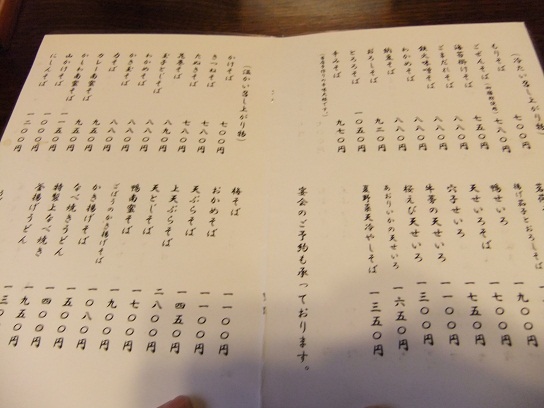 (冷たい召し上がり物)
もりそば 七〇〇円
ごぜんそば
七五〇円
海苔掛けそば 八八〇円
ごまだれそば 八八〇円
鉄火味噌そば 八八〇円
わかめそば 八八〇円
納豆そば 八八〇円
おろしそば 九二〇円
とろろそば 一〇五〇円
辛みそば 九七〇円
揚げ茄子とおろしそば 一九〇〇円
鴨せいろ 一七〇〇円
天せいろそば 一七五〇円
穴子せいろ 一一〇〇円
一三〇〇円
桜えび天せいろ 一一〇〇円
あおりいかの天せいろ 一六五〇円
夏野菜天冷やしそば 一三五〇円
宴会のご予約も承っております。
(温かい召し上がり物)
かけそば 七〇〇円
きつねそば 七八〇円
たぬきそば 七八〇円
花巻そば 八八〇円
玉子とじそば 七九〇円
わかめそば 八八〇円
かき玉そば 八八〇円
力そば 八八〇円
カレー南蛮そば 九五〇円
かしわ南蛮そば 九五〇円
山かけそば 一一五〇円
にしんそば 一二〇〇円
梅そば 一一〇〇円
おかめそば 一一〇〇円
天ぷらそば 一四五〇円
上天ぷらそば 二八〇〇円
天とじそば 一七〇〇円
鴨南蛮そば 一七〇〇円
ごぼうのかき揚げそば 一九〇〇円
かき揚げそば 一〇八〇円
なべ焼きうどん 一五〇〇円
特製上なべ焼き
釜揚げうどん